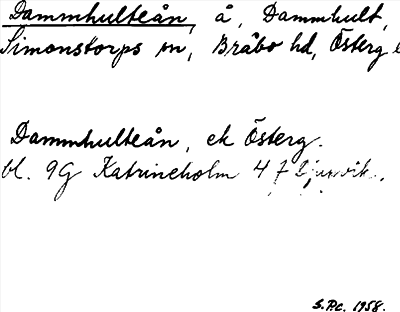 Dammhulteån, å, Dammhult,
Simonstorps sn, Bråbo hd, Österg
Dammhulteån, ek Österg.
bl. 9G Katrineholm 4 7
S.P.c. 1958.